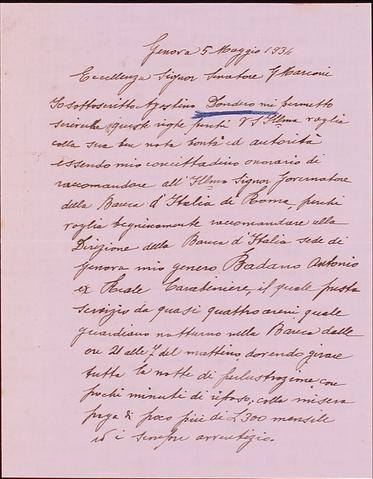 Genova 5 Maggio 1934
Eccellenza Signor Senatore G Marconi
Io sottoscritto Agostino Dondero mi permetto
scriverle queste righe perchè V S Illma voglia
colla sua ben nota bontà ed autorità
essendo mio concittadino onorario di
raccomandare all'Illmo Signor Governatore
della Banca d'Italia di Roma, perchè
voglia benignamente raccomandare alla
Direzione della Banca d'Italia sede di
Genova mio genero Badano Antonio
ex Reale Carabiniere, il quale presta
servizio da quasi quattro anni quale
guardiano notturno nella Banca dalle
ore 21 alle 7 del mattino dovendo girare
tutta la notte di perlustrazione con
pochi minuti di riposo, colla misera
paga di poco più di L 300 mensile
ed è sempre avventizio.